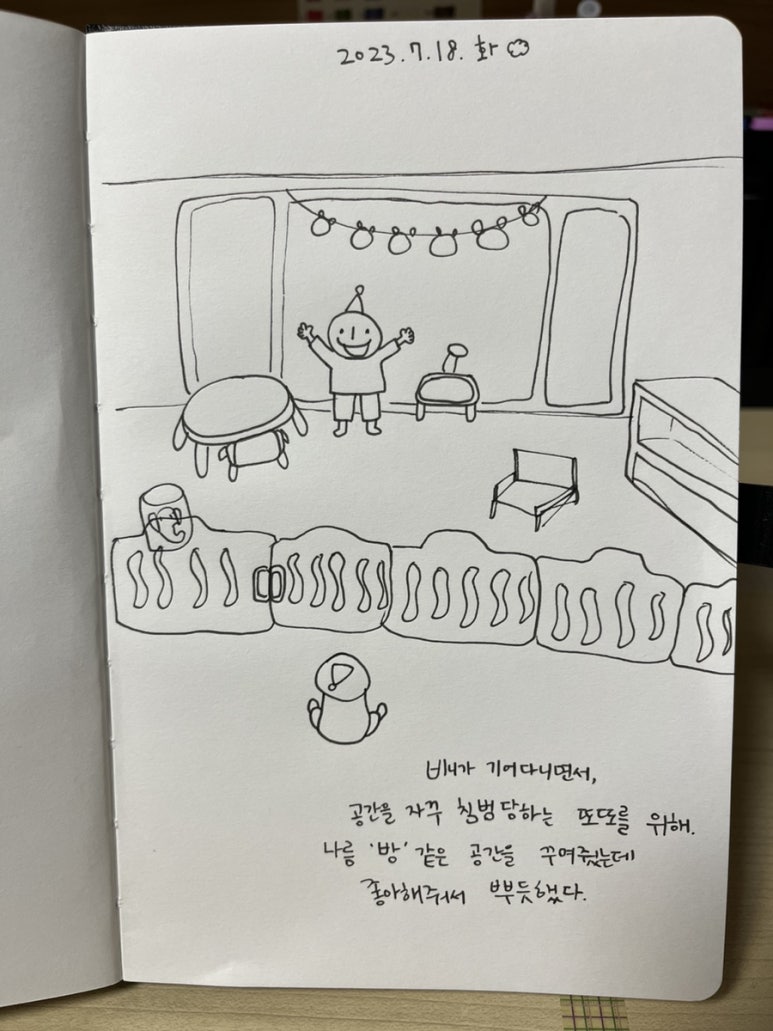 2023.7.18. 화
비니가 기어다니면서,
공간을 자꾸 침범당하는 또또를 위해.
나름 '방' 같은 공간을 꾸며줬는데
좋아해줘서 뿌듯했다.